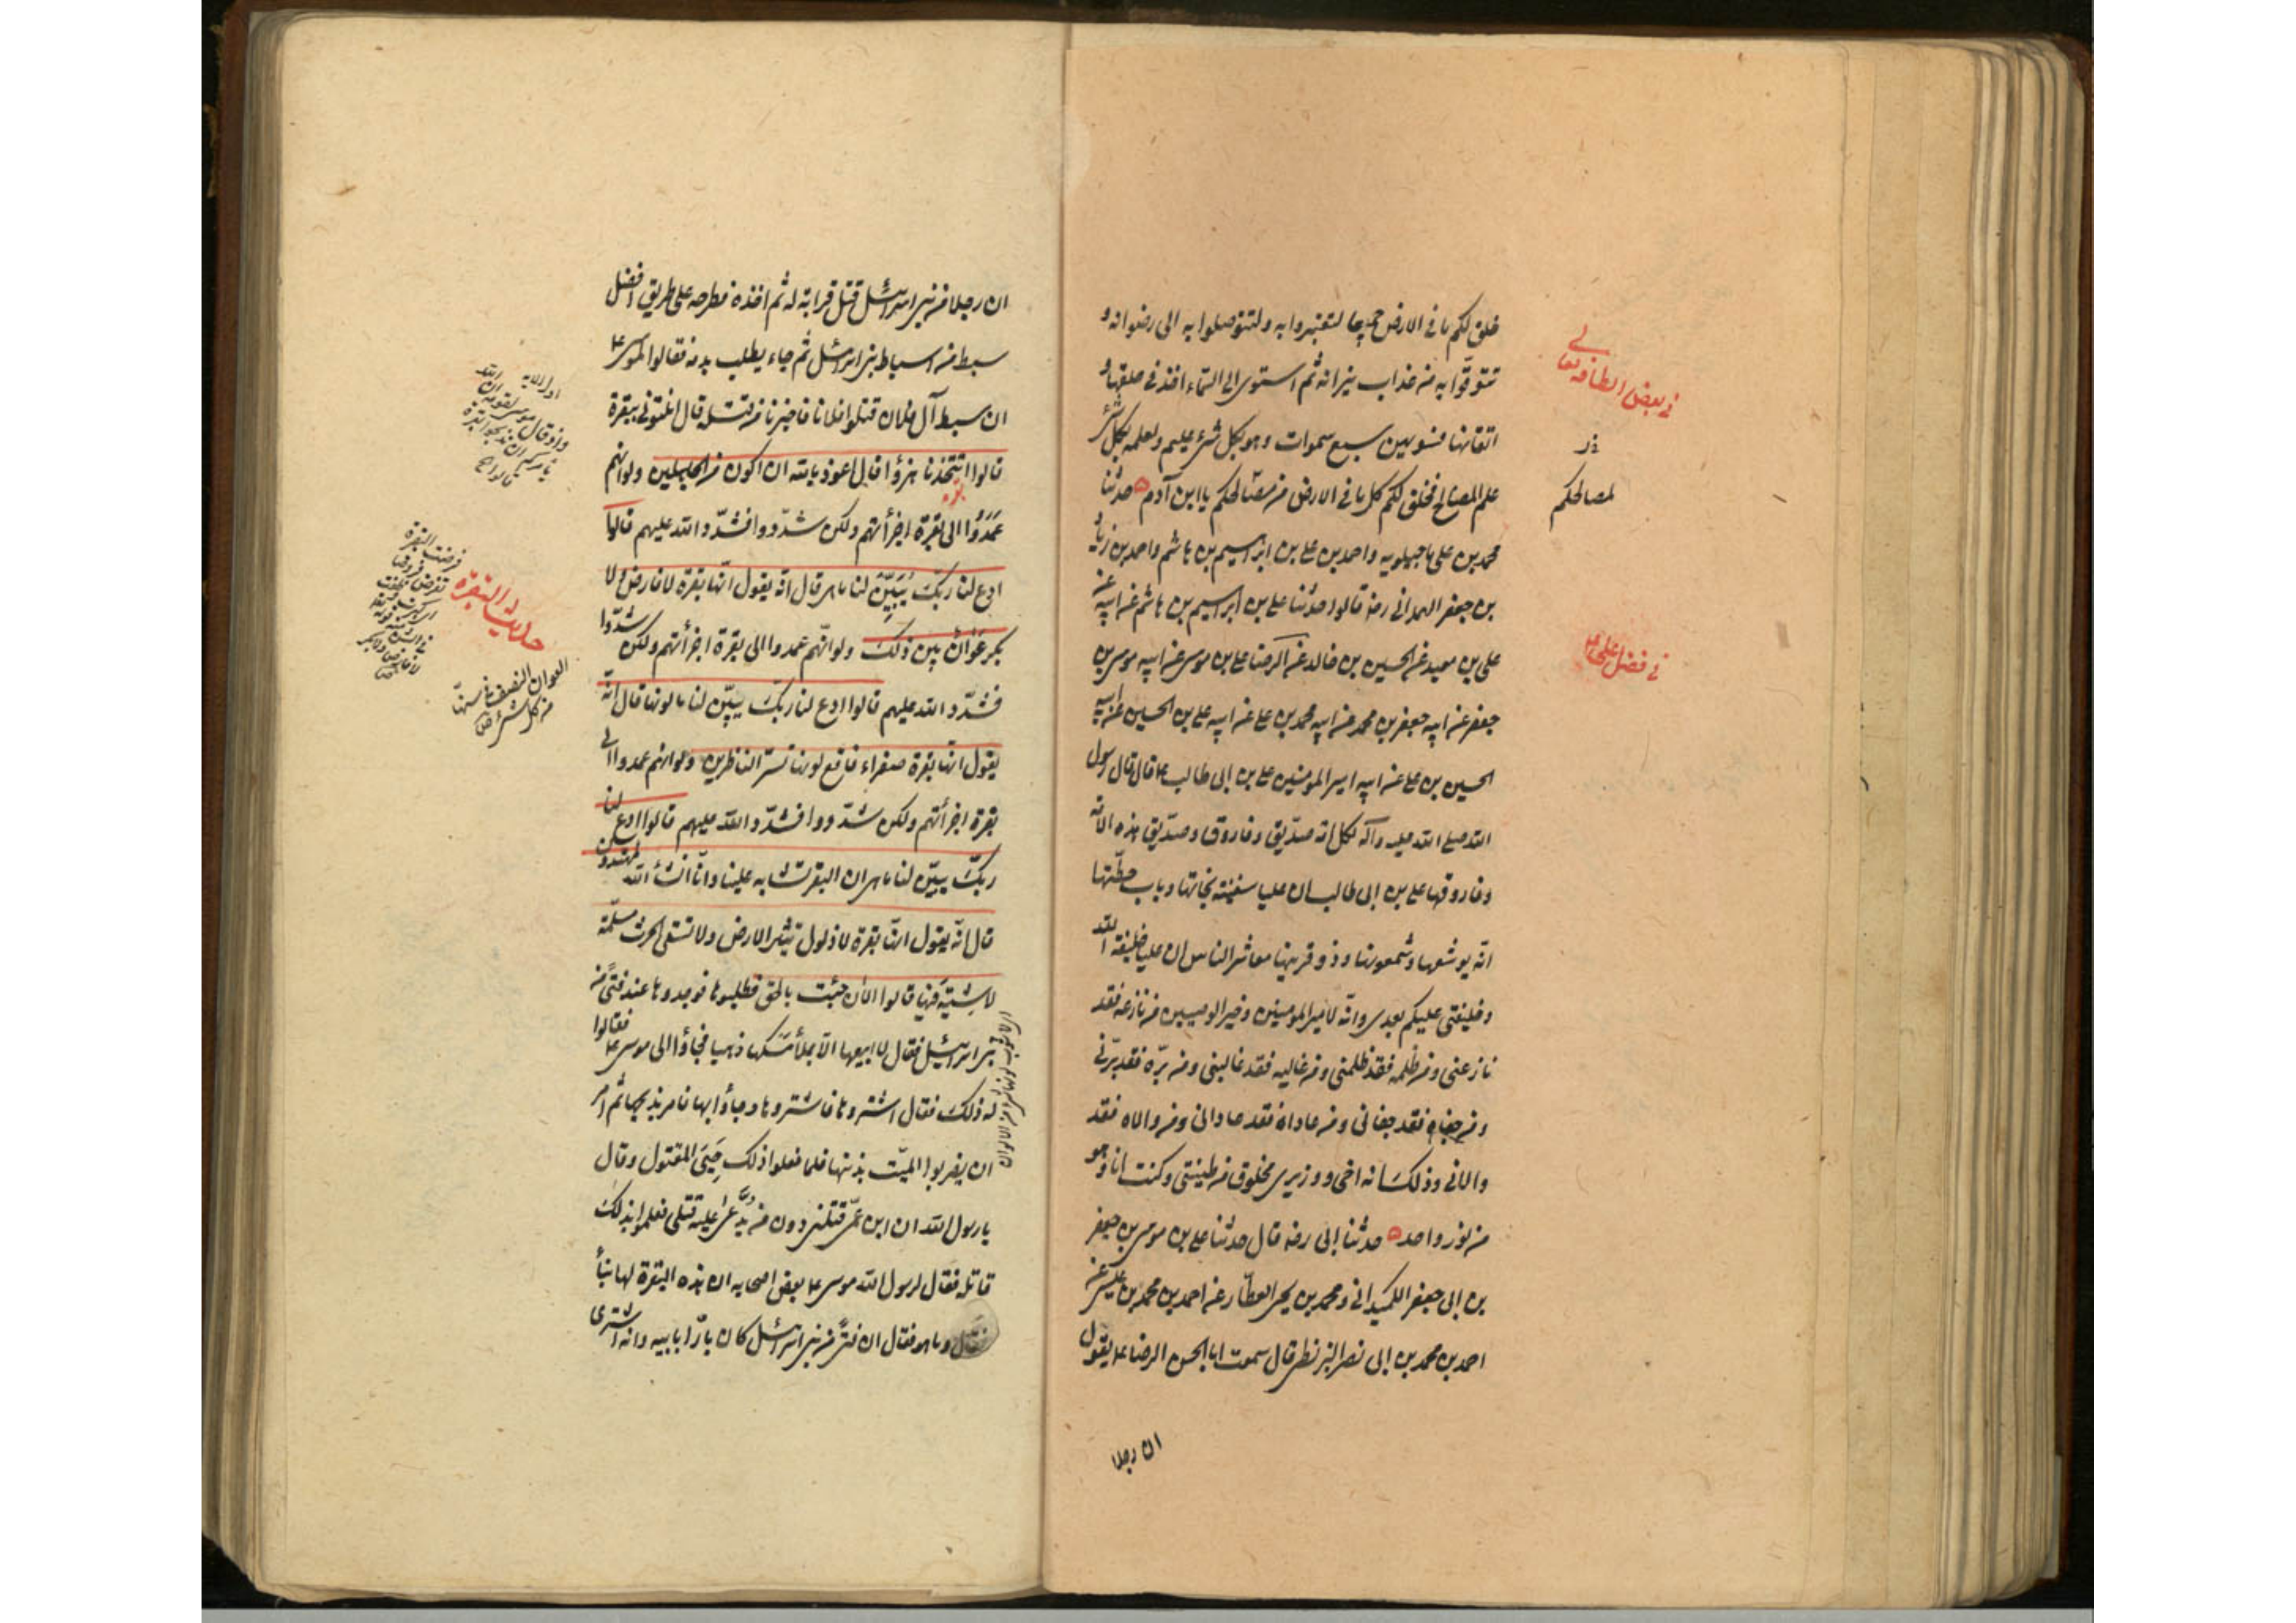 خلق لكم ما فى الارض جميعا لتعتبروا به ولتتوصلوا به الى رضوانه و
تتوقّوا به من عذاب نيرانه ثم استوى الى السماء اخذ فى خلقها و
اتقانها فسويهن سبع سموات وهو بكل شئ عليم ولعلمه بكل شئ
علم المصالح فخلق لكم كل ما فى الارض من مصالحكم يا ابن آدم حدثنا
محمد بن على ماجيلويه واحمد بن على بن ابراهيم بن هاشم واحمد بن زياد
بن جعفر الهمدانى رضه قالوا حدثنا على بن ابراهيم بن هاشم عن ابيه عن
على بن معبد عن الحسين بن خالد عن الرضا على بن موسى عن ابيه موسى بن
جعفر عن ابيه جعفر بن محمد عن ابيه محمد بن على عن ابيه على بن الحسين عن ابيه
الحسين بن على عن ابيه امير المومنين على بن ابى طالب ع قال قال رسول
الله صلى الله عليه وآله لكل امة صدّيق وفاروق وصدّيق هذه الامة
وفاروقها على بن ابى طالب ان عليا سفينة نجاتها وباب حطّتها
انه يوشعها وشمعونها وذو قرنيها معاشر الناس ان عليا خليفة الله
وخليفتى عليكم بعدى وانّه لامير المومنين وخير الوصيين من نازعه فقد
نازعنى ومن ظلمه فقد ظلمنى ومن غالبه فقد غالبنى ومن برّه فقد برّنى
ومن جفاه فقد جفانى ومن عاداه فقد عادانى ومن والاه فقد
والانى وذلك انه اخى ووزيرى مخلوق من طينتى وكنت انا وهو
من نور واحد حدثنا ابى رضه قال حدثنا على بن موسى بن جعفر
بن ابى جعفر الكميدانى ومحمد بن يحيى العطّار عن احمد بن محمد بن عيسى عن
احمد بن محمد بن ابى نصر البزنطى قال سمعت ابا الحسن الرضا ع يقول
ان رجلا
فى بعض الطافه تعالى
لمصالحكم
فى فضل على ع
ان رجلا من بنى اسرائيل قتل قرابة له ثم اخذه فطرحه على طريق افضل
سبط من اسباط بنى اسرائيل ثم جاء يطلب بدمه فقالوا لموسى ع
ان سبط آل فلان قتلوا فلانا فاخبرنا من قتله قال ائتونى ببقرة
قالوا اتتخذنا هزؤا قال اعوذ بالله ان اكون من الجاهلين ولو انهم
عمدوا الى بقرة اجزأتهم ولكن شدّدوا فشدّد الله عليهم قالوا
ادع لنا ربّك يبيّن لنا ما هى قال انه يقول انّها بقرة لا فارض ولا
بكر عوان بين ذلك ولو انّهم عمدوا الى بقرة اجزأتهم ولكن شدّدوا
فشدّد الله عليهم قالوا ادع لنا ربّك يبيّن لنا ما لونها قال انّه
يقول انها بقرة صفراء فاقع لونها تسرّ الناظرين ولو انهم عمدوا الى
بقرة اجزأتهم ولكن شدّدوا فشدّد الله عليهم قالوا ادع لنا
ربّك يبيّن لنا ما هى ان البقر تشابه علينا وانّا انشاء الله لمهتدون
قال انّه يقول انها بقرة لا ذلول تثير الارض ولا تسقى الحرث مسلّمة
لا شية فيها قالوا الان جئت بالحق فطلبوها فوجدوها عند فتى من
بنى اسرائيل فقال لا ابيعها الّا بملأ مسكها ذهبا فجاؤا الى موسى ع فقالوا
له ذلك فقال اشتروها فاشتروها وجاؤا بها فامر بذبحها ثم امر
ان يضربوا الميّت بذنبها فلما فعلوا ذلك حيى المقتول وقال
يا رسول الله ان ابن عمّى قتلنى دون من يدّعى عليه قتلى فعلموا بذلك
قاتله فقال لرسول الله موسى ع بعض اصحابه ان هذه البقرة لها نبأ
فقال وما هو فقال ان فتى من بنى اسرائيل كان بارّا بابيه وانه اشترى
اول الاية
واذ قال موسى لقومه ان الله
يأمركم ان تذبحوا بقرة
حديث البقرة
العوان النصف فى سنّها
من كل شئ